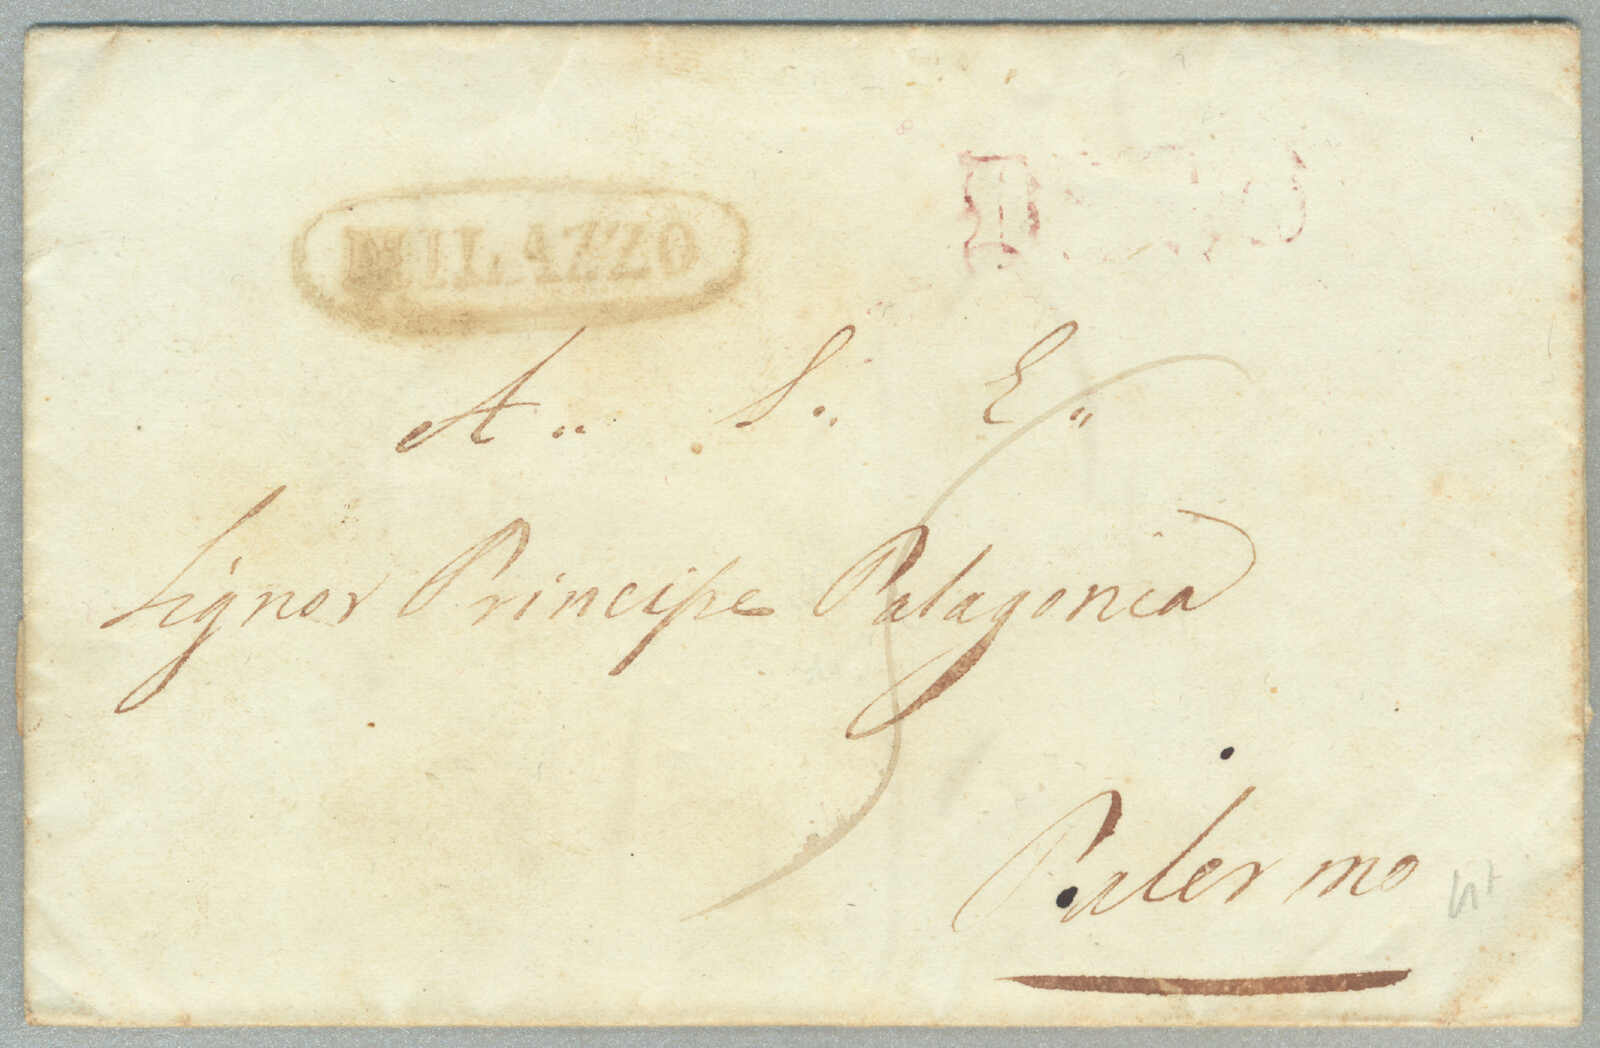 MILAZZO
A.. S.. E..
Signor Principe Palagonia
Palermo